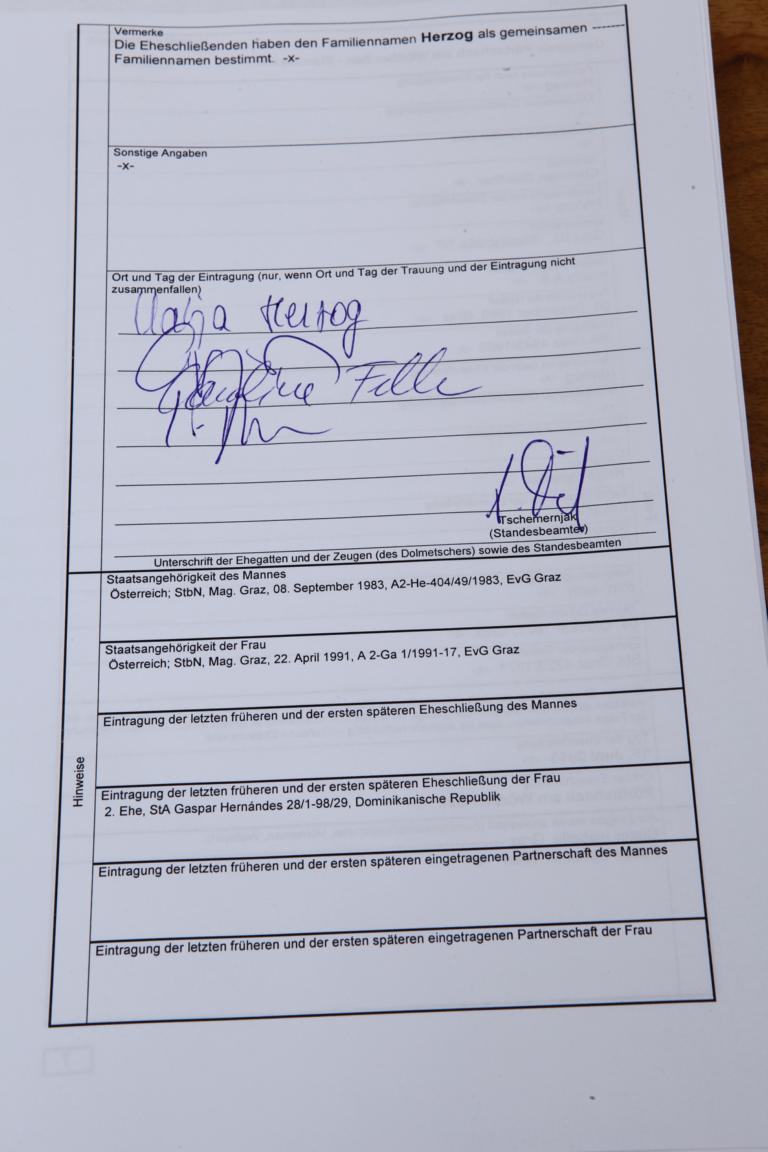 Vermerke
Die Eheschließenden haben den Familiennamen Herzog als gemeinsamen -------
Familiennamen bestimmt. -x-
Sonstige Angaben
-x-
Ort und Tag der Eintragung (nur, wenn Ort und Tag der Trauung und der Eintragung nicht
zusammenfallen)
Herzog
Tschemernjak
(Standesbeamter)
Unterschrift der Ehegatten und der Zeugen (des Dolmetschers) sowie des Standesbeamten
Hinweise
Staatsangehörigkeit des Mannes
Österreich; StbN, Mag. Graz, 08. September 1983, A2-He-404/49/1983, EvG Graz
Staatsangehörigkeit der Frau
Österreich; StbN, Mag. Graz, 22. April 1991, A 2-Ga 1/1991-17, EvG Graz
Eintragung der letzten früheren und der ersten späteren Eheschließung des Mannes
Eintragung der letzten früheren und der ersten späteren Eheschließung der Frau
2. Ehe, StA Gaspar Hernándes 28/1-98/29, Dominikanische Republik
Eintragung der letzten früheren und der ersten späteren eingetragenen Partnerschaft des Mannes
Eintragung der letzten früheren und der ersten späteren eingetragenen Partnerschaft der Frau